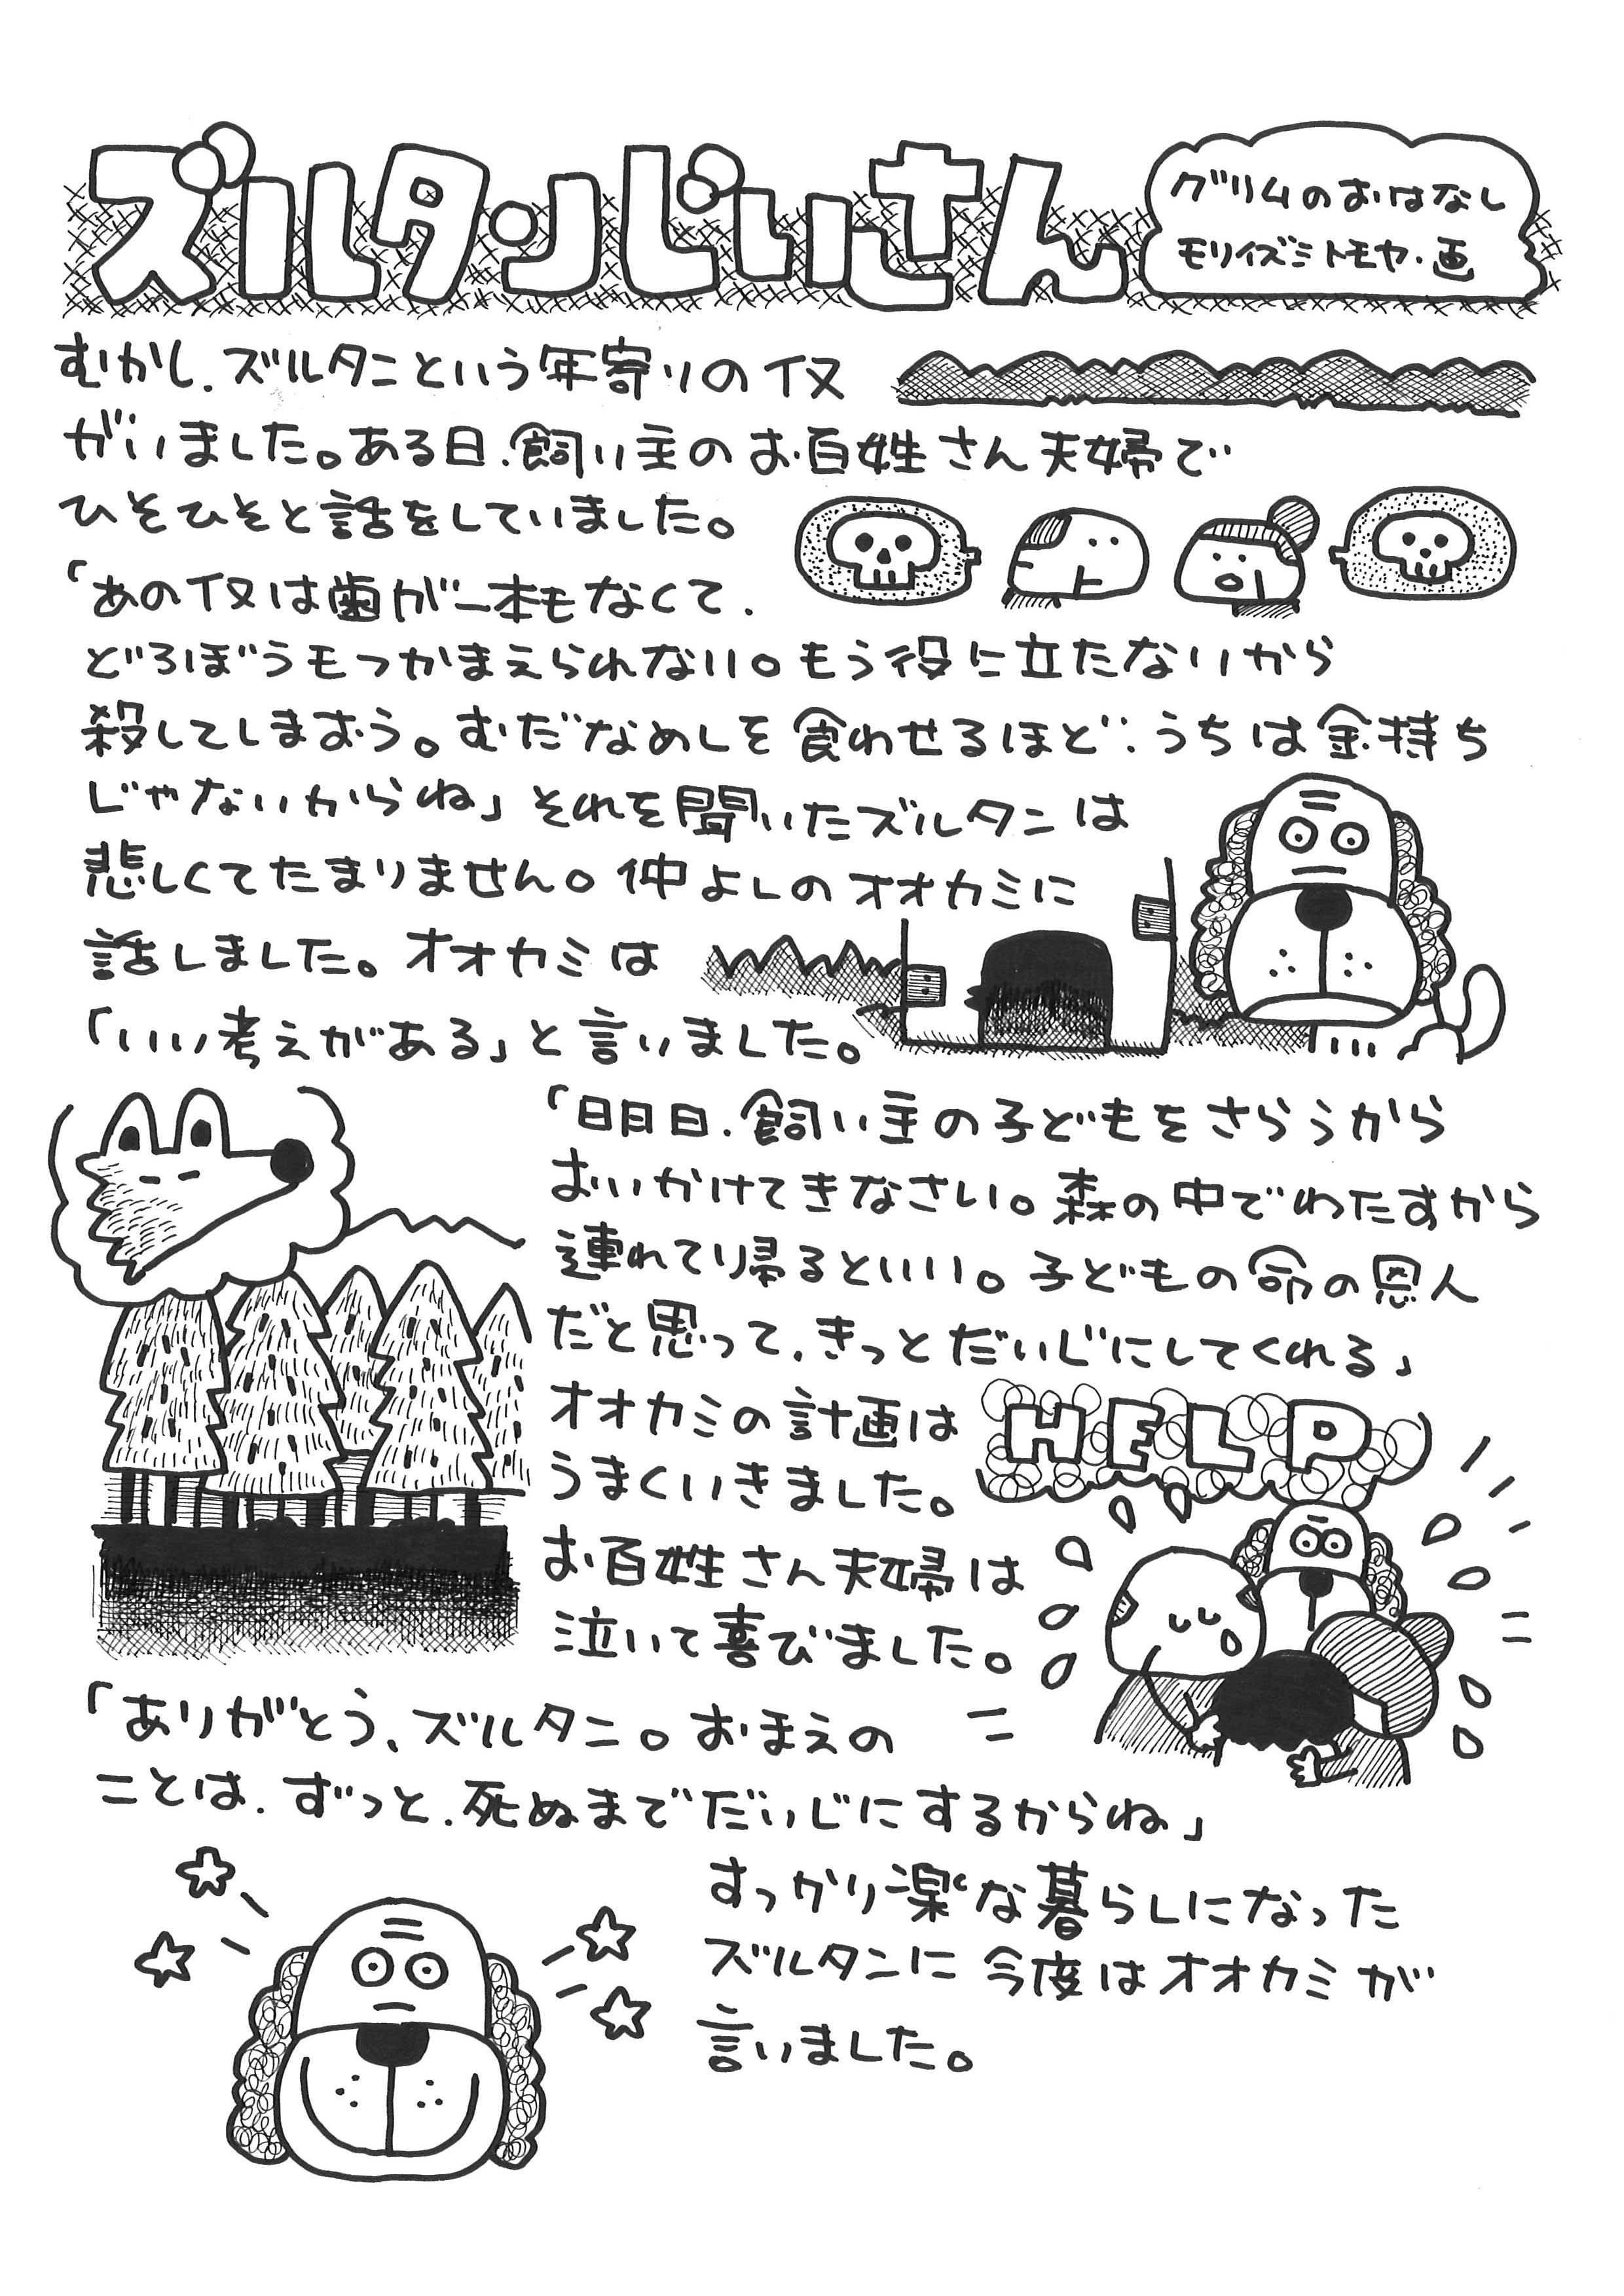 ズルタンじいさん
グリムのおはなし
モリイズミトモヤ・画
むかし、ズルタンという年寄りのイヌ
がいました。ある日、飼い主のお百姓さん夫婦で
ひそひそと話をしていました。
「あのイヌは歯が一本もなくて、
どろぼうもつかまえられない。もう役に立たないから
殺してしまおう。むだなめしを食わせるほど、うちは金持ち
じゃないからね」それを聞いたズルタンは
悲しくてたまりません。仲よしのオオカミに
話しました。オオカミは
「いい考えがある」と言いました。
「明日、飼い主の子どもをさらうから
おいかけてきなさい。森の中でわたすから
連れて帰るといい。子どもの命の恩人
だと思って、きっとだいじにしてくれる」
オオカミの計画は
うまくいきました。
HELP
お百姓さん夫婦は
泣いて喜びました。
「ありがとう、ズルタン。おまえの
ことは、ずっと、死ぬまでだいじにするからね」
すっかり楽な暮らしになった
ズルタンに今度はオオカミが
言いました。